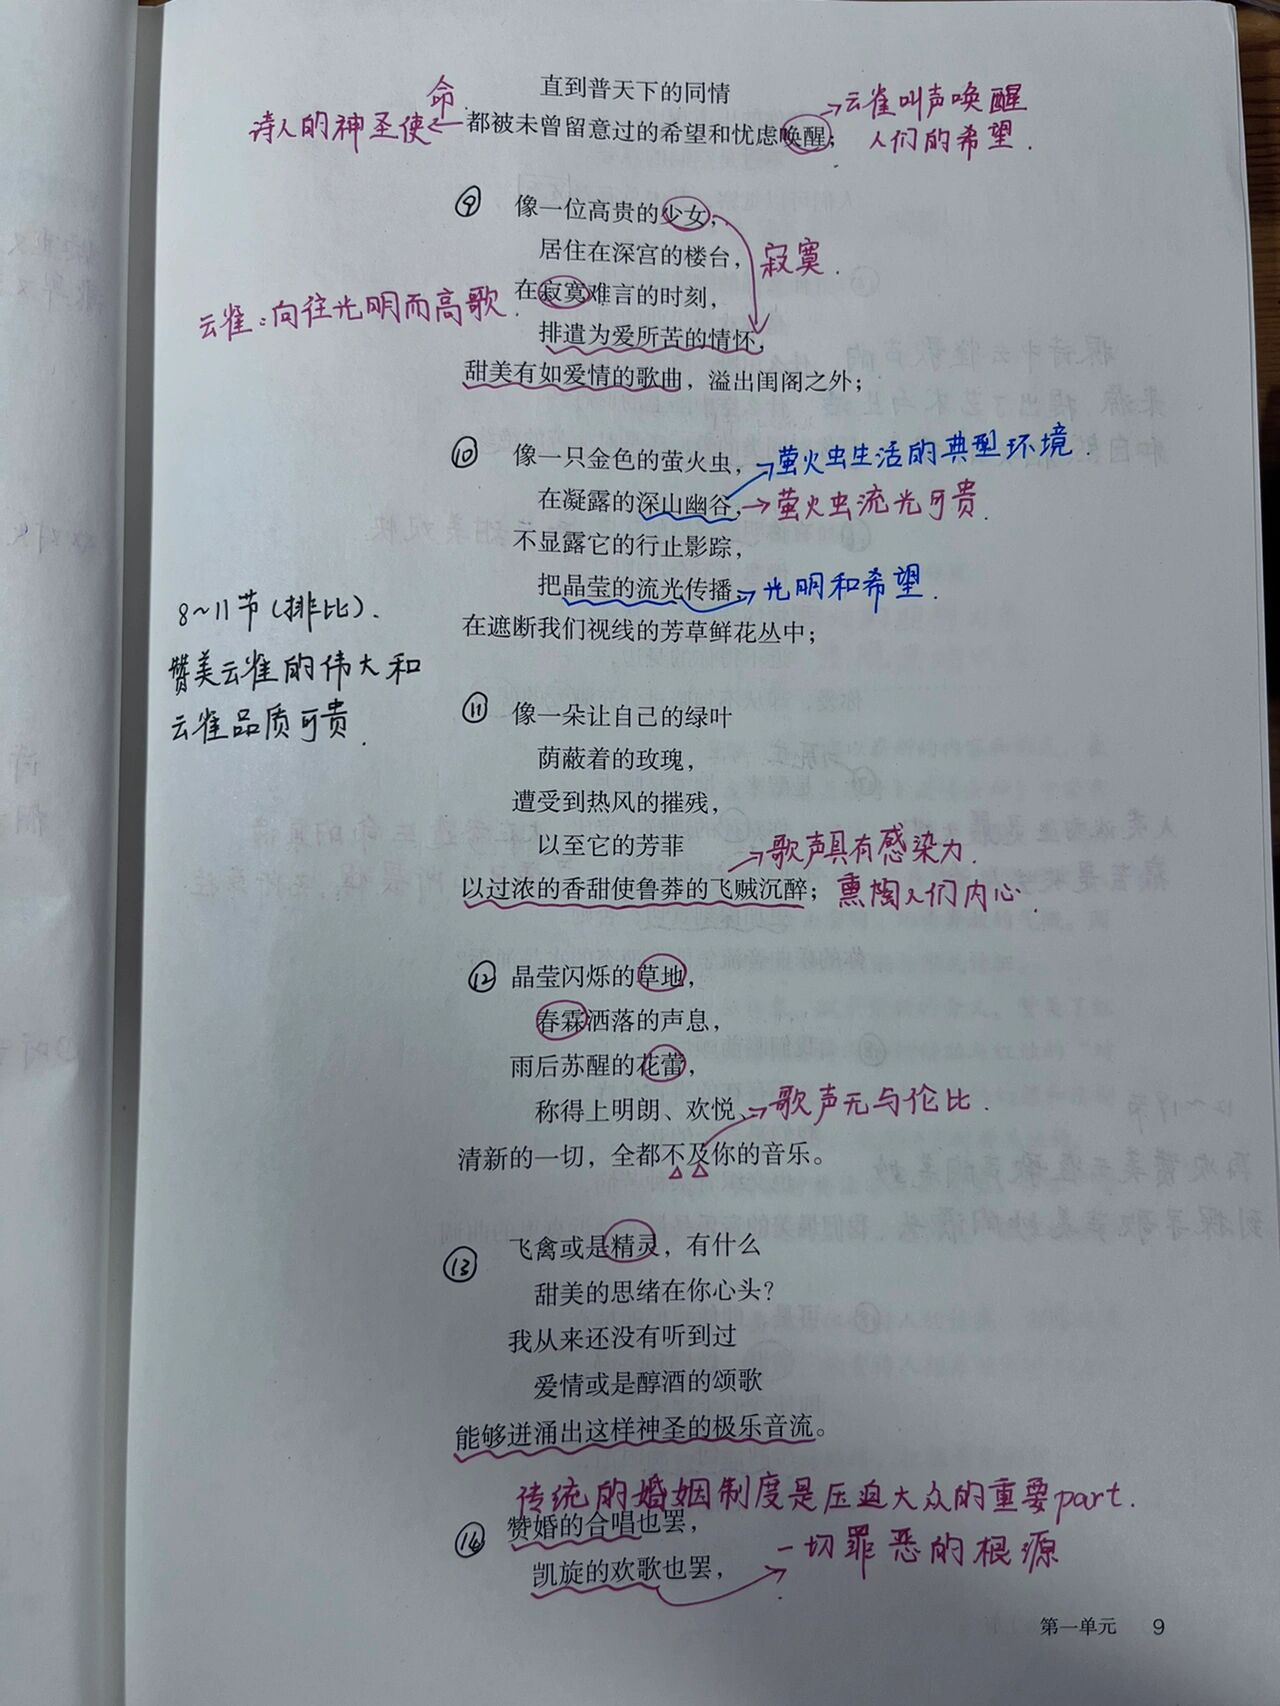 直到普天下的同情
命
诗人的神圣使
都被未曾留意过的希望和忧虑唤醒；
云雀叫声唤醒
人们的希望.
⑨ 像一位高贵的少女，
居住在深宫的楼台，
寂寞.
在寂寞难言的时刻，
云雀:向往光明而高歌.
排遣为爱所苦的情怀，
甜美有如爱情的歌曲，溢出闺阁之外；
⑩ 像一只金色的萤火虫，
萤火虫生活的典型环境.
在凝露的深山幽谷，
萤火虫流光可贵.
不显露它的行止影踪，
把晶莹的流光传播，
光明和希望.
在遮断我们视线的芳草鲜花丛中；
8~11节(排比).
赞美云雀的伟大和
云雀品质可贵.
⑪ 像一朵让自己的绿叶
荫蔽着的玫瑰，
遭受到热风的摧残，
以至它的芳菲
歌声具有感染力.
以过浓的香甜使鲁莽的飞贼沉醉；
熏陶人们内心.
⑫ 晶莹闪烁的草地，
春霖洒落的声息，
雨后苏醒的花蕾，
称得上明朗、欢悦、
歌声无与伦比.
清新的一切，全都不及你的音乐。
⑬ 飞禽或是精灵，有什么
甜美的思绪在你心头？
我从来还没有听到过
爱情或是醇酒的颂歌
能够迸涌出这样神圣的极乐音流。
传统的婚姻制度是压迫大众的重要part.
⑭ 赞婚的合唱也罢，
凯旋的欢歌也罢，
一切罪恶的根源
第一单元 9